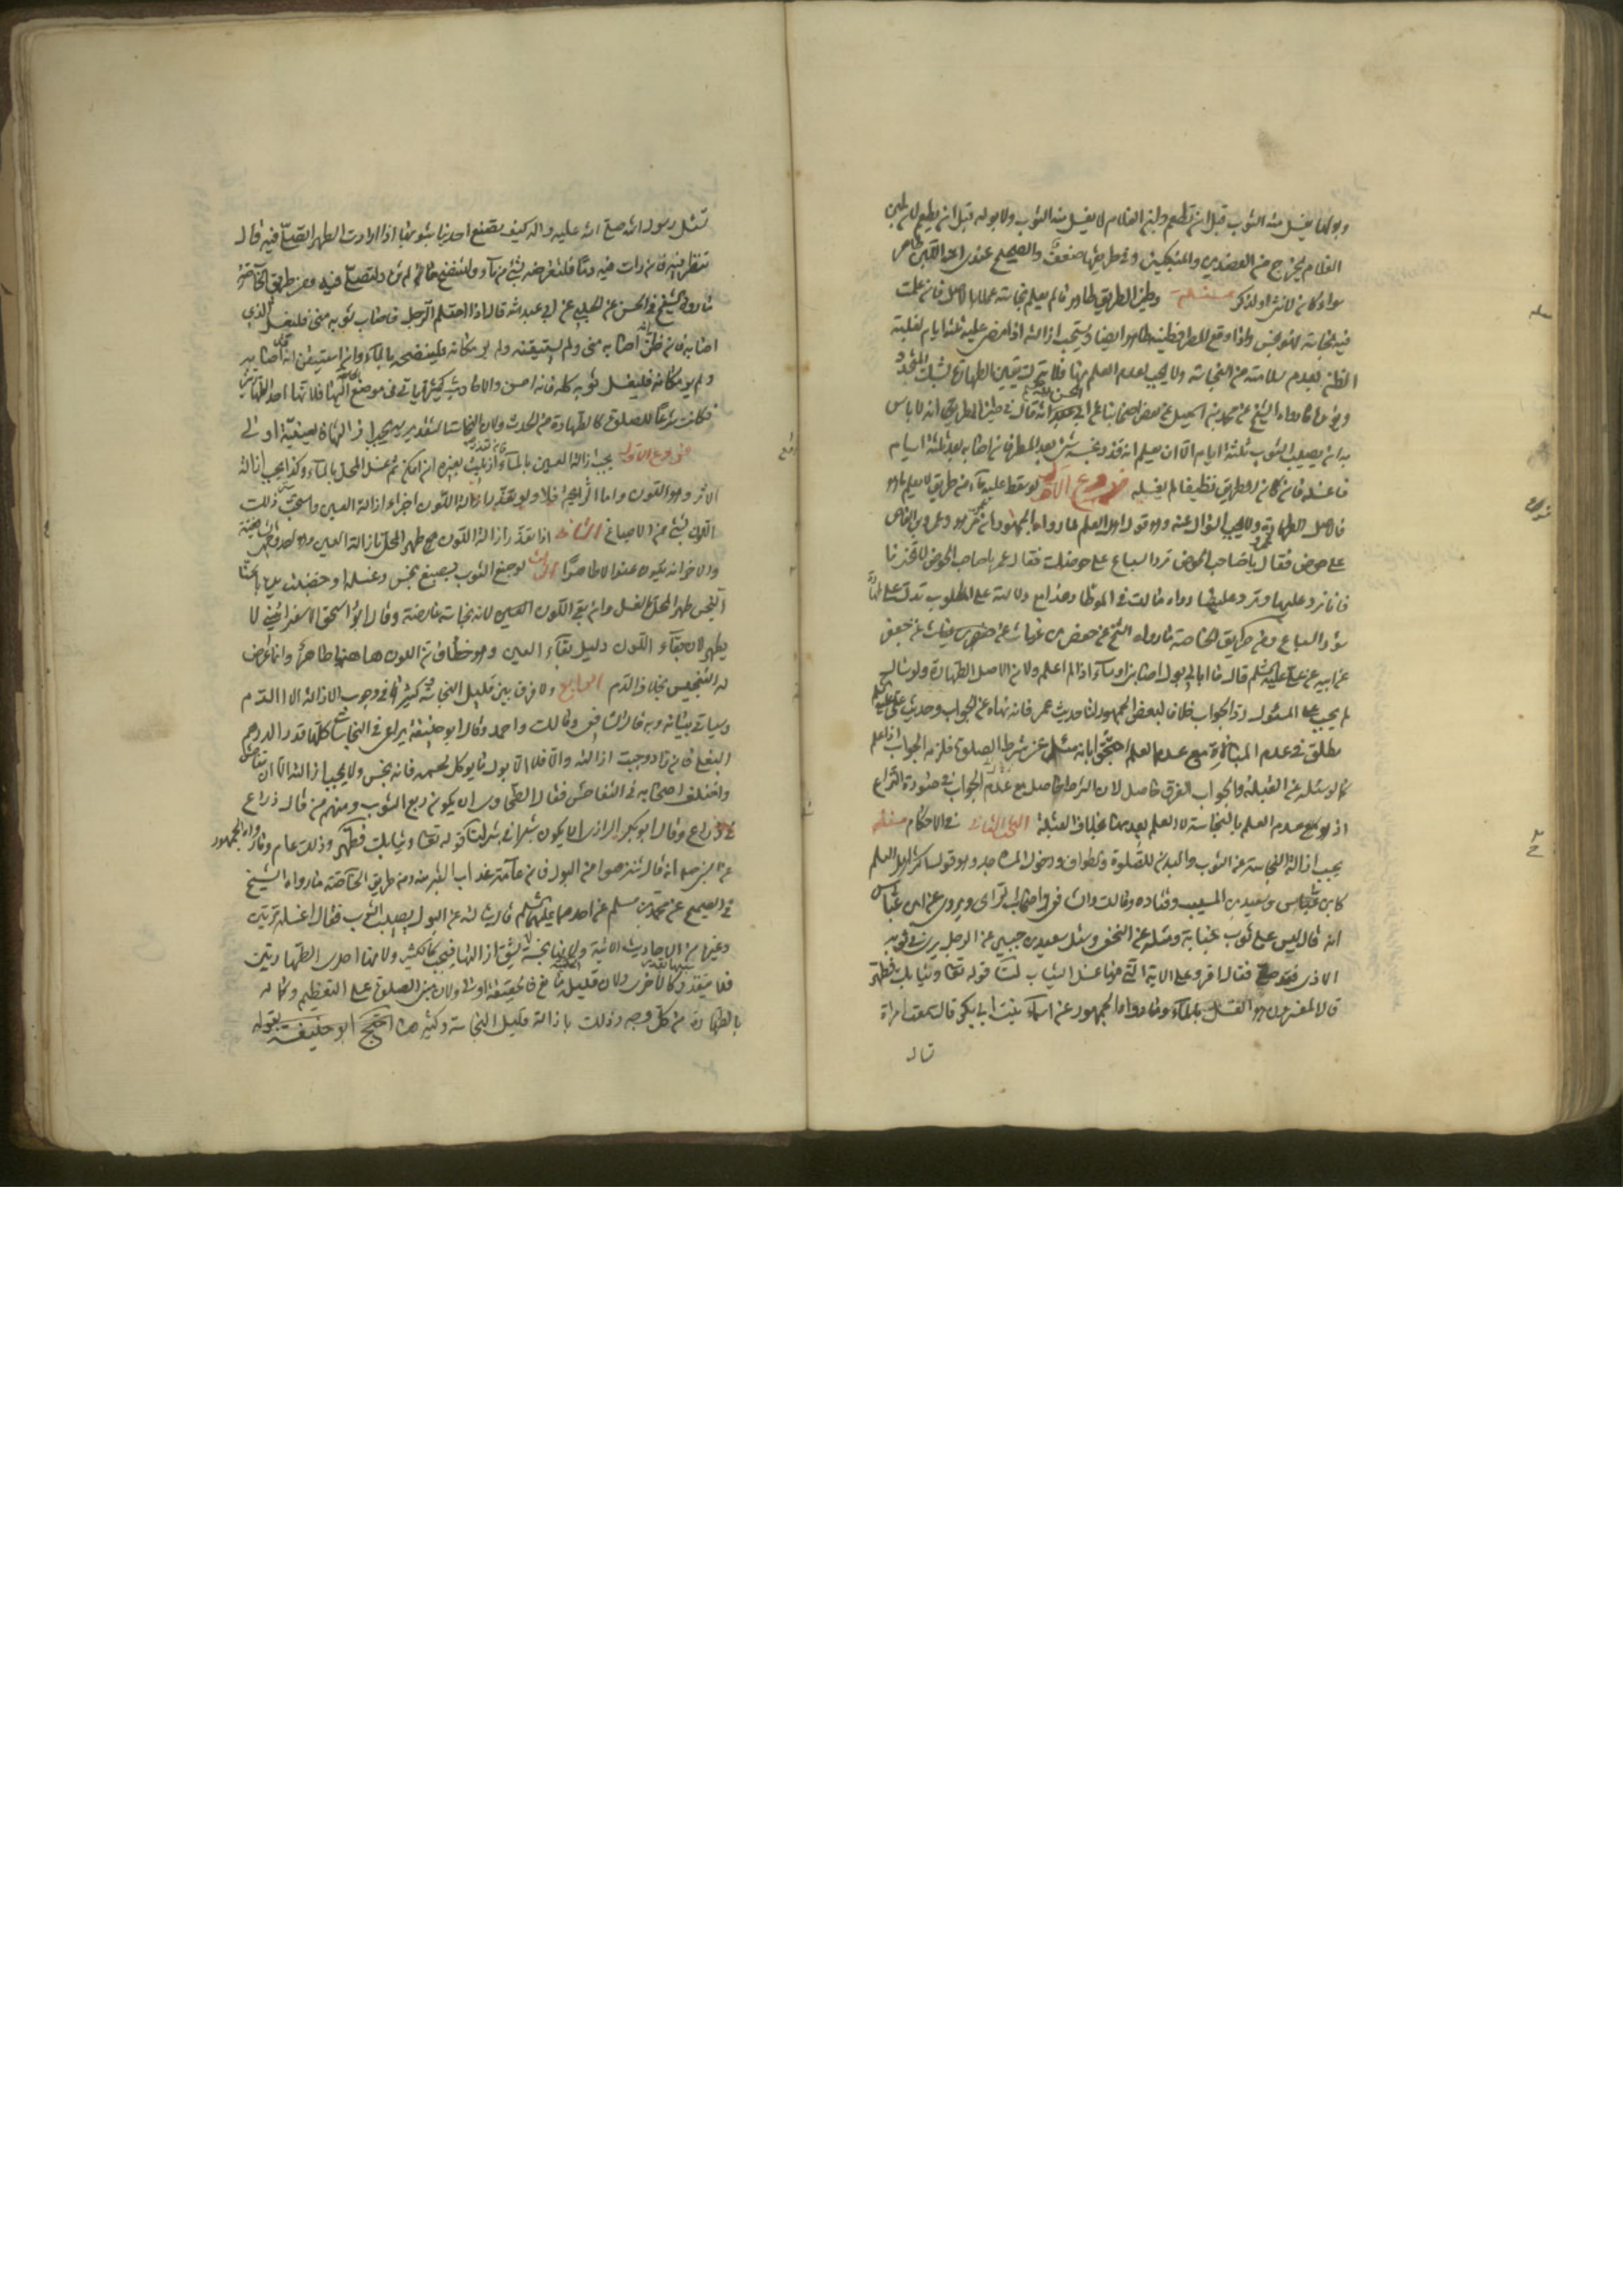 وبولها يغسل منه الثوب قبل ان تطعم ولبن الغلام لا يغسل منه الثوب ولا بوله قبل ان يطعم لان لبن
الغلام يخرج من العضدين والمنكبين وفي طريقها ضعف والصحيح عندي ان اللبن طاهر
سواء كان لانثى او لذكر مسئلة وطين الطريق طاهر ما لم يعلم نجاسته عملا بالاصل فان علمت
فيه نجاسة فهو نجس واذا وقع المطر فطينه طاهر ايضا ويستحب ازالته اذا مضى عليه ثلثة ايام لغلبة
الظن بعدم سلامته من النجاسة ولا يجب لعدم العلم بها فلا يترك يقين الطهارة لشك المتجدد
ويؤيده ما رواه الشيخ عن محمد بن اسمعيل عن بعض اصحابنا عن ابي الحسن انه قال في طين المطر انه لا باس
به ان يصيب الثوب ثلثة ايام الا ان يعلم انه قد نجسه شئ بعد المطر فان اصابه بعد ثلثة ايام
فاغسله فان كان الطريق نظيفا لم يغسله فروع الاول لو سقط عليه ماء من طريق لا يعلم ما هو
فالاصل الطهارة ولا يجب السؤال عنه وهو قول اهل العلم لما رواه الجمهور ان عمر هو وعمرو بن العاص
على حوض فقال عمرو يا صاحب الحوض ترد السباع على حوضك فقال عمر يا صاحب الحوض لا تخبرنا
فانا نرد عليها وترد علينا رواه مالك في الموطا وهذا مع دلالته على المطلوب تدل على طهارة
سؤر السباع ومن طريق الخاصة ما رواه الشيخ عن حفص بن غياث عن جعفر
عن ابيه عن علي عليه السلم قال ما ابالي ابول اصابني او ماء اذا لم اعلم ولان الاصل الطهارة ولو سال
لم يجب على المسئول رد الجواب خلافا لبعض الجمهور لنا حديث عمر فانه نهاه عن الجواب وحديث علي عليه السلم
مطلق في عدم المبالاة مع عدم العلم احتج بانه سئل عن شرط الصلوة فلزمه الجواب اذا علم
كما لو سئله عن القبلة والجواب الفرق حاصل لان الشرط حاصل مع عدم الجواب في صورة النزاع
اذ هو مع عدم العلم بالنجاسة لا العلم بعدمها بخلاف القبلة البحث الثاني في الاحكام مسئلة
يجب ازالة النجاسة عن الثوب والبدن للصلوة والطواف ودخول المساجد وهو قول اكثر اهل العلم
كابن عباس وسعيد بن المسيب وقتادة ومالك والشافعي واصحاب الراي ويروى عن ابن عباس
انه قال ليس على ثوب جنابة ومثله عن النخعي وسئل سعيد بن جبير عن الرجل يرى في ثوبه
الاذى وقد صلى فقال اقرء على الاية التي فيها غسل الثياب لنا قوله تعالى وثيابك فطهر
قال المفسرون هو الغسل بالماء وما رواه الجمهور عن اسماء بنت ابي بكر قالت سمعت امراة
تسال
تسئل رسول الله صلى الله عليه واله كيف تصنع احدينا بثوبها اذا رات الطهر اتصلي فيه قال
تنظر فيه فان رات فيه دما فلتقرضه بشئ من ماء ولتنضح ما لم تر ولتصلي فيه ومن طريق الخاصة
ما رواه الشيخ في الحسن عن الحلبي عن ابي عبد الله قال اذا احتلم الرجل فاصاب ثوبه مني فليغسل الذي
اصابه فان ظن انه اصابه مني ولم يستيقن ولم ير مكانه فلينضحه بالماء وان استيقن انه قد اصابه
ولم ير مكانه فليغسل ثوبه كله فانه احسن والاحاديث كثيرة ياتي في مواضع اليها فلانها احد الطهارتين
فكانت شرطا للصلوة كالطهارة من الحدث
فروع الاول يجب ازالة العين بالماء ان امكن ثم غسل المحل بالماء وكذا يجب ازالة
الاثر وهو اللون واما الرائحة فلا ولو تعذر ازالة اللون اجزاء ازالة العين واستحب ذلك
اللون بشئ من الاصباغ الثاني اذا تعذر ازالة اللون طهر المحل بازالة العين
والاخر انه يكون عفوا لا طاهرا الثالث لو صبغ الثوب بصبغ نجس وغسله او خضبت يدها بالحنا
النجس طهر المحل بالغسل وان بقي اللون لانه نجاسة عارضة وقال ابو اسحق الاسفرايني لا
يطهر لان بقاء اللون دليل بقاء العين وهو خطا فان اللون هاهنا طاهر وانما عرض
له التنجيس بخلاف الدم الرابع ولا فرق بين قليل النجاسة وكثيرها في وجوب الازالة الا الدم
وسياتي بيانه وبه قال الشافعي ومالك واحمد وقال ابو حنيفة يراعى في النجاسات كلها قدر الدرهم
البغلي فان زاد وجبت ازالته والا فلا الا بول ما يوكل لحمه فانه نجس ولا يجب ازالته الا ان يتفاحش
واختلف اصحابه في التفاحش فقال الطحاوي ان يكون ربع الثوب ومنهم من قال ذراع
في ذراع وقال ابو بكر الرازي ان يكون شبرا في شبر لنا قوله تعالى وثيابك فطهر وذلك عام وما رواه الجمهور
عن النبي صلعم انه قال تنزهوا من البول فان عامة عذاب القبر منه ومن طريق الخاصة ما رواه الشيخ
في الصحيح عن محمد بن مسلم عن احدهما عليهما السلم قال سئلته عن البول يصيب الثوب فقال اغسله مرتين
وغيرها من الاحاديث الاتية ولانها نجسة لا يشق ازالتها فتجب كالكثير ولانها احدى الطهارتين
فلا يتقدر كالاخرى ولان قليل الحدث مانع فالحقيقة اولى ولان مبنى الصلوة على التعظيم وكماله
بالطهارة من كل وجه وذلك بازالة قليل النجاسة وكثيرها احتج ابو حنيفة بقوله